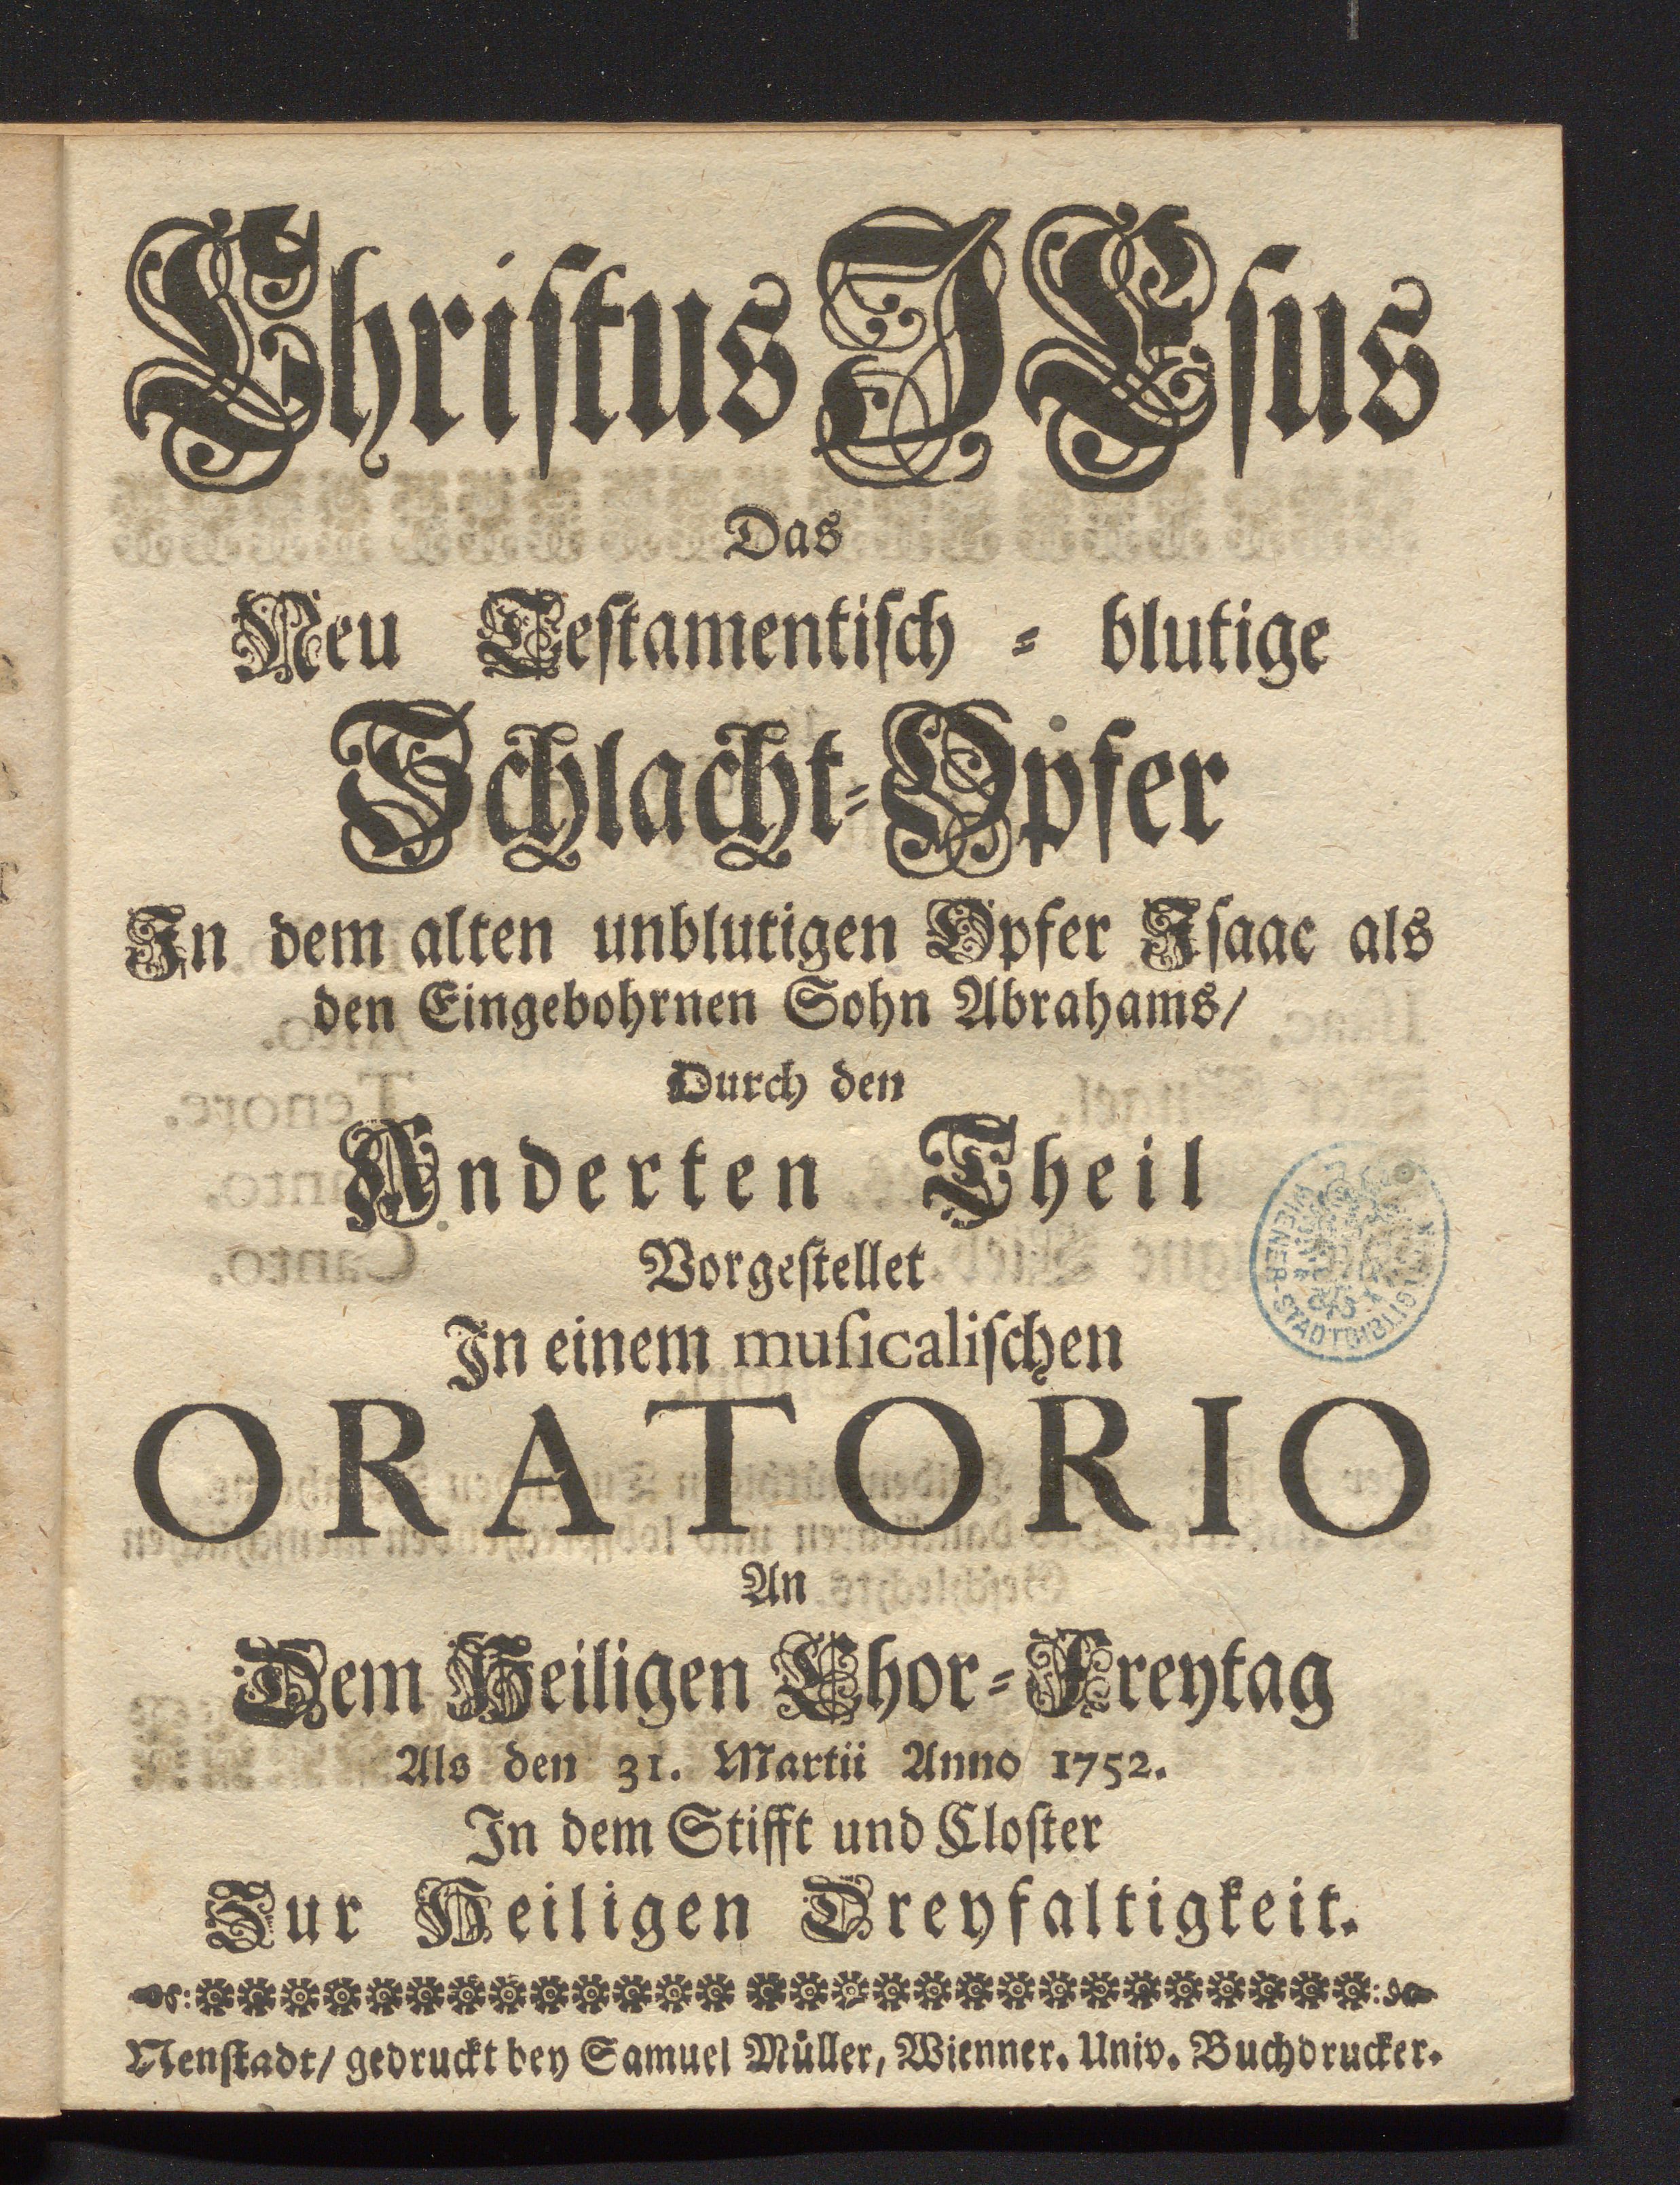 Christus JEsus
Das
Neu Testamentisch = blutige
Schlacht=Opfer
In dem alten unblutigen Opfer Isaac als
den Eingebohrnen Sohn Abrahams/
Durch den
Anderten Theil
Vorgestellet
In einem musicalischen
ORATORIO
An
Dem Heiligen Chor=Freytag
Als den 31. Martii Anno 1752.
In dem Stifft und Closter
Zur Heiligen Dreyfaltigkeit.
Nenstadt/ gedruckt bey Samuel Müller, Wienner. Univ. Buchdrucker.
WIENER-STADTBIBLIOTHEK